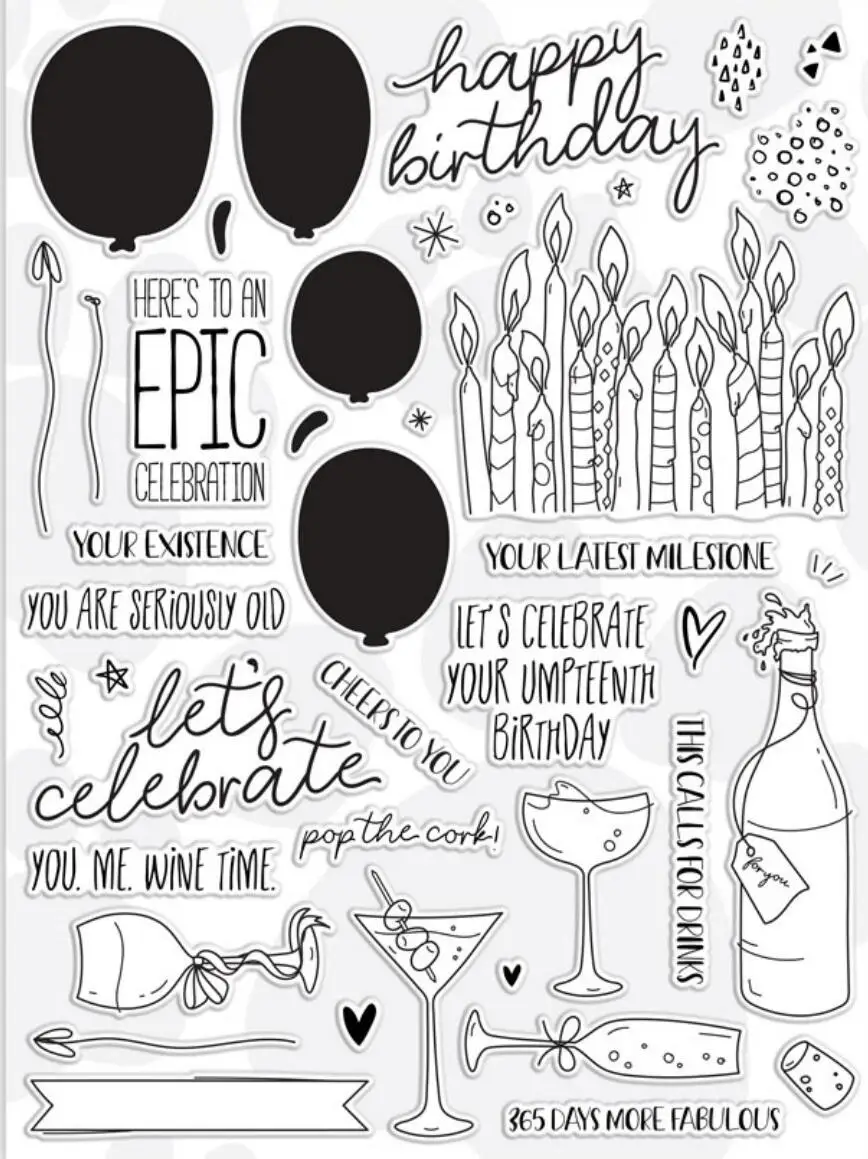 happy
birthday
HERE'S TO AN
EPIC
CELEBRATION
YOUR EXISTENCE
YOUR LATEST MILESTONE
YOU ARE SERIOUSLY OLD
LET'S CELEBRATE
YOUR UMPTEENTH
BIRTHDAY
let's
celebrate
CHEERS TO YOU
THIS CALLS FOR DRINKS
pop the cork!
YOU. ME. WINE TIME.
for you
365 DAYS MORE FABULOUS